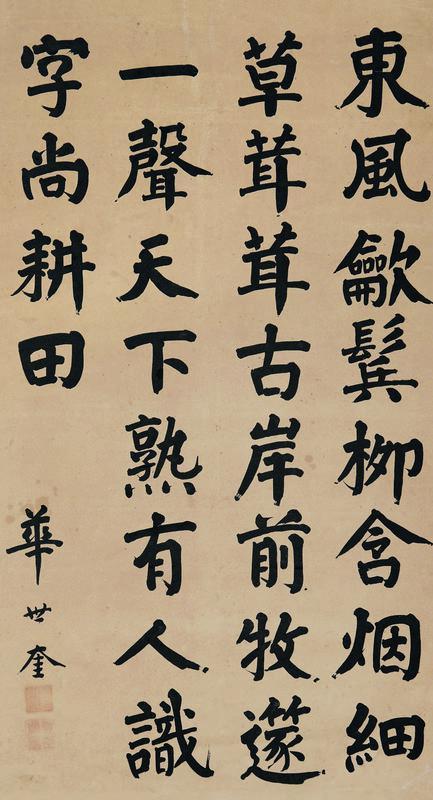 東風龡鬂柳含烟細
草茸茸古岸前牧篴
一聲天下熟有人識
字尚耕田
華世奎